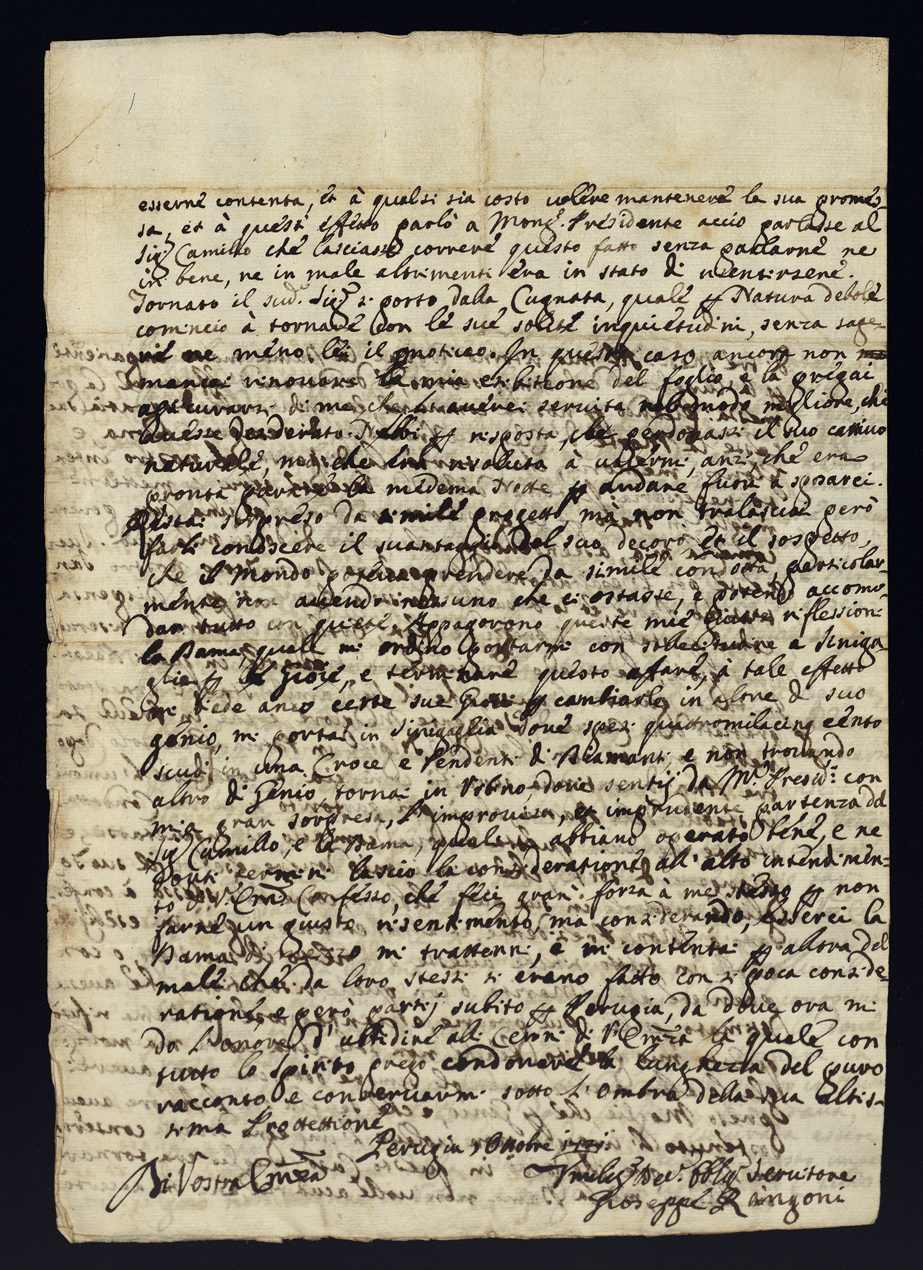 esserne contenta, et à qualsisia costo volere mantenere la sua promes-
sa, et à quest'effetto parlò à Mong.r Presidente acciò parlasse al
Sig.r Camillo che lasciasse correre questo fatto senza parlarne ne
in bene, ne in male altrimenti era in stato di risentirsene.
Tornato il sud.o Sig.re si portò dalla Cugnata, quale p Natura debole
cominciò à tornare con le sue solite inquietudini, senza sape-
ne meno lei il motivo. In questo caso ancora non
mancai rinovare la mia esibitione del foglio, e la pregai
assicurarsi di me, che l'averei servita nel modo migliore, che
avesse desiderato. N'ebbi p risposta, che perdonassi il suo cattivo
naturale, mà che era risoluta à volermi, anzi, che era
pronta la medema Notte p andare fuori à sposarci.
Restai sorpreso da simile progetto mà non tralasciai però
farli conoscere il svantaggio del suo decoro et il sospetto,
che il Mondo poteva prendere da simile condotta particolar-
mente non avendo nessuno che ci ostasse, e potendo accomo-
dar tutto con quiete. Appagorono queste mie giuste riflessioni
la Dama, quale mi ordinò portarmi con sollecitudine a Siniga-
glia p le Gioie, e terminare questo affare, à tale effetto
mi diede anco certe sue Gioie p cambiarle in altre di suo
genio, mi portai in Sinigaglia dove spesi quattromilacinq cento
scudi in una Croce e Pendenti di Diamanti, e non trovando
altro di Genio, tornai in Urbino dove sentij da M.r Presid.e con
mia gran sorpresa, l'improvisa et imprudente partenza del
Sig.r Camillo, e la Dama, quale abbiano operato bene, e ne
dovuti termini lascio la consideratione all'alto intendimen-
to di V.ra Em.za Confesso, che feci gran forza à me stesso p non
farne un giusto risentimento, ma considerando, esserci la
Dama di mezzo mi trattenni, e mi contentai p altro del
male che da loro stessi si erano fatto con sì poca conside-
ratione, e però partij subito p Perugia, da dove ora mi
do l'onore d'ubbidire alli Cenni di V.ra Em.za la quale con
tutto lo spirito prego condonare la lunghezza del puro
racconto e conservarmi sotto l'ombra della sua altis-
sima Protettione
Perugia Ottobre
Di Vostra Em.za
Umiliss.o Dev.o Obblig.o Servitore
Gioseppe Rangoni